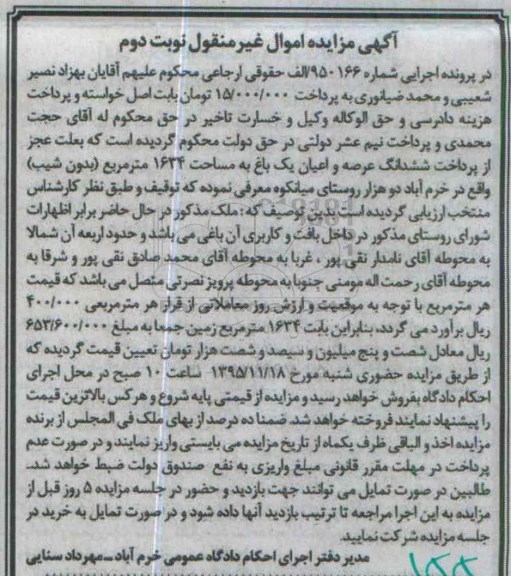 آگهی مزایده اموال غیر منقول نوبت دوم
در پرونده اجرایی شماره ۹۵۰۱۶۶/الف حقوقی ارجاعی محکوم علیهم آقایان بهزاد نصیر
شعیبی و محمد ضیانوری به پرداخت ۱۵/۰۰۰/۰۰۰ تومان بابت اصل خواسته و پرداخت
هزینه دادرسی و حق الوکاله وکیل و خسارت تاخیر در حق محکوم له آقای حجت
محمدی و پرداخت نیم عشر دولتی در حق دولت محکوم گردیده است که بعلت عجز
از پرداخت ششدانگ عرصه و اعیان یک باغ به مساحت ۱۶۳۴ مترمربع (بدون شیب)
واقع در خرم آباد دو هزار روستای میانکوه معرفی نموده که توقیف و طبق نظر کارشناس
منتخب ارزیابی گردیده است بدین توصیف که: ملک مذکور در حال حاضر برابر اظهارات
شورای روستای مذکور در داخل بافت و کاربری آن باغی می باشد و حدود اربعه آن شمالا
به محوطه آقای نامدار نقی پور ، غربا به محوطه آقای محمد صادق نقی پور و شرقا به
محوطه آقای رحمت اله مومنی جنوبا به محوطه پرویز نصرتی متصل می باشد که قیمت
هر مترمربع با توجه به موقعیت و ارزش روز معاملاتی از قرار هر مترمربعی ۴۰۰/۰۰۰
ریال برآورد می گردد، بنابراین بابت ۱۶۳۴ مترمربع زمین جمعا به مبلغ ۶۵۳/۶۰۰/۰۰۰
ریال معادل شصت و پنج میلیون و سیصد و شصت هزار تومان تعیین قیمت گردیده که
از طریق مزایده حضوری شنبه مورخ ۱۳۹۵/۱۱/۱۸ ساعت ۱۰ صبح در محل اجرای
احکام دادگاه بفروش خواهد رسید و مزایده از قیمتی پایه شروع و هرکس بالاترین قیمت
را پیشنهاد نمایند فروخته خواهد شد. ضمنا ده درصد از بهای ملک فی المجلس از برنده
مزایده اخذ و الباقی ظرف یکماه از تاریخ مزایده می بایستی واریز نمایند و در صورت عدم
پرداخت در مهلت مقرر قانونی مبلغ واریزی به نفع صندوق دولت ضبط خواهد شد.
طالبین در صورت تمایل می توانند جهت بازدید و حضور در جلسه مزایده ۵ روز قبل از
مزایده به این اجرا مراجعه تا ترتیب بازدید آنها داده شود و در صورت تمایل به خرید در
جلسه مزایده شرکت نمایید.
مدیر دفتر اجرای احکام دادگاه عمومی خرم آباد ــ مهرداد سنایی